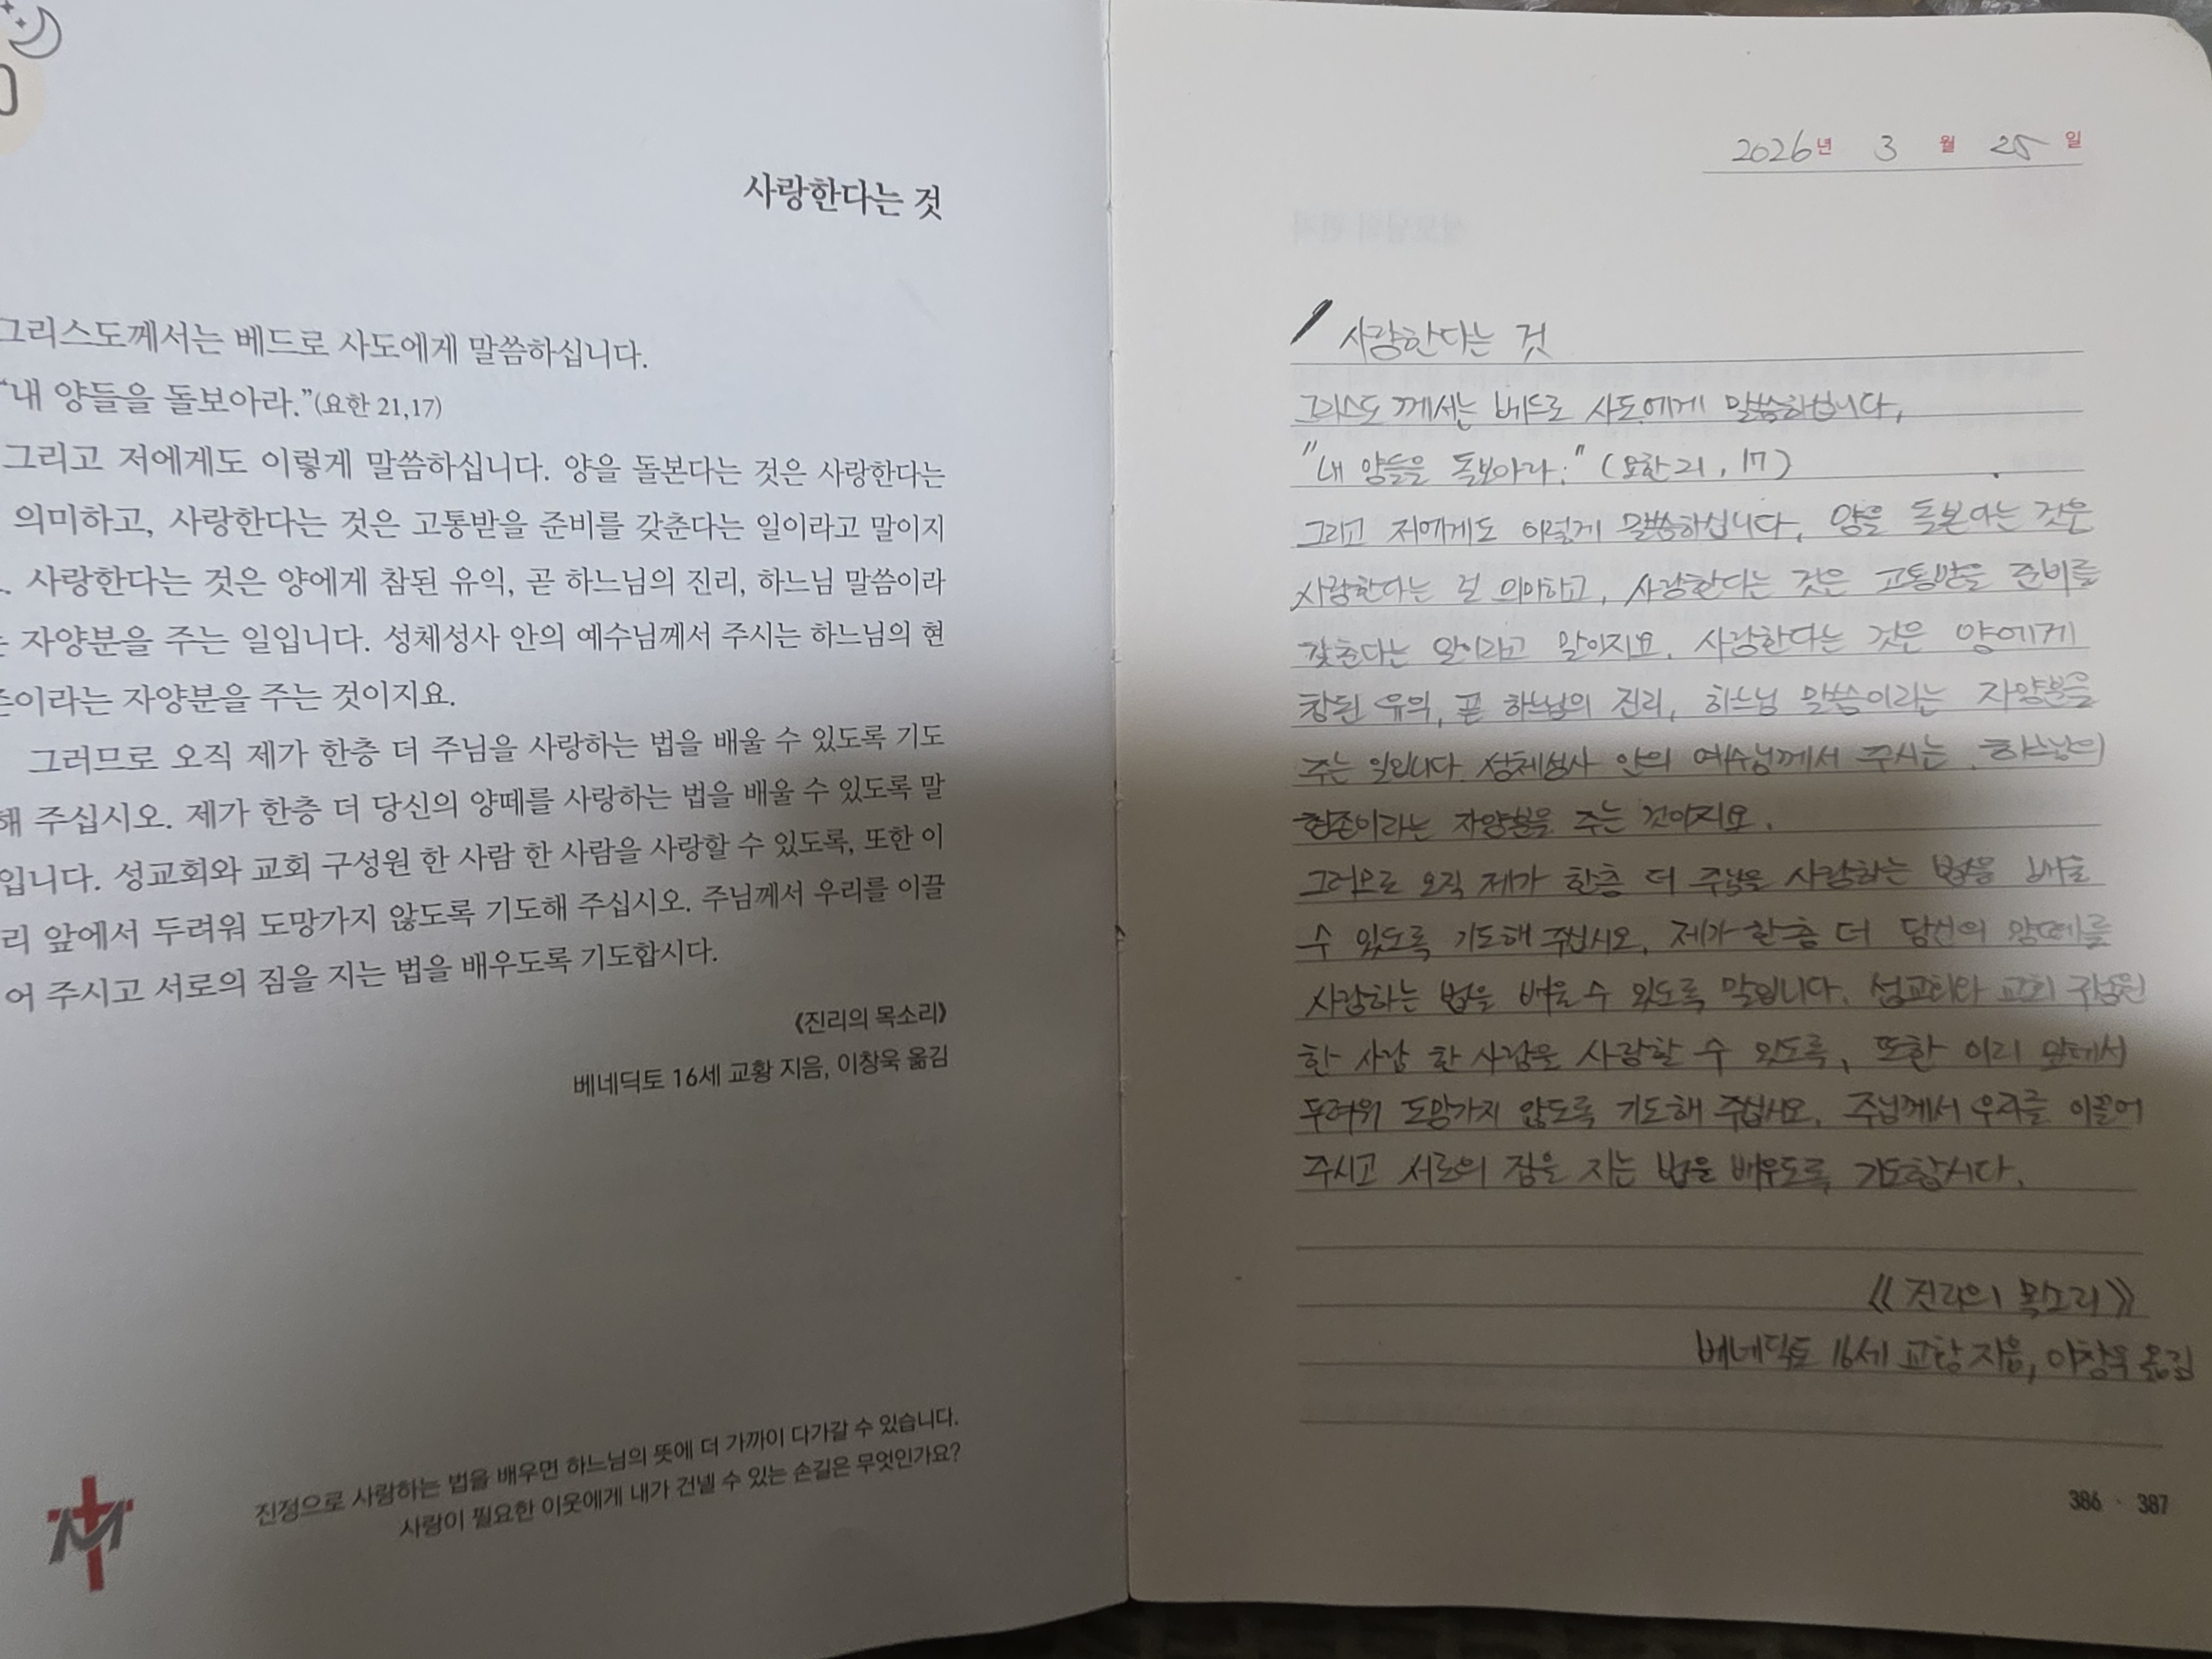 사랑한다는 것
그리스도께서는 베드로 사도에게 말씀하십니다.
“내 양들을 돌보아라.”(요한 21,17)
그리고 저에게도 이렇게 말씀하십니다. 양을 돌본다는 것은 사랑한다는
의미하고, 사랑한다는 것은 고통받을 준비를 갖춘다는 일이라고 말이지
. 사랑한다는 것은 양에게 참된 유익, 곧 하느님의 진리, 하느님 말씀이라
자양분을 주는 일입니다. 성체성사 안의 예수님께서 주시는 하느님의 현
존이라는 자양분을 주는 것이지요.
그러므로 오직 제가 한층 더 주님을 사랑하는 법을 배울 수 있도록 기도
해 주십시오. 제가 한층 더 당신의 양떼를 사랑하는 법을 배울 수 있도록 말
입니다. 성교회와 교회 구성원 한 사람 한 사람을 사랑할 수 있도록, 또한 이
리 앞에서 두려워 도망가지 않도록 기도해 주십시오. 주님께서 우리를 이끌
어 주시고 서로의 짐을 지는 법을 배우도록 기도합시다.
《진리의 목소리》
베네딕토 16세 교황 지음, 이창욱 옮김
진정으로 사랑하는 법을 배우면 하느님의 뜻에 더 가까이 다가갈 수 있습니다.
사랑이 필요한 이웃에게 내가 건넬 수 있는 손길은 무엇인가요?
2026년 3월 25일
사랑한다는 것
그리스도께서는 베드로 사도에게 말씀하십니다.
"내 양들을 돌보아라." (요한 21, 17)
그리고 저에게도 이렇게 말씀하십니다. 양을 돌본다는 것은
사랑한다는 걸 의미하고, 사랑한다는 것은 고통받을 준비를
갖춘다는 일이라고 말이지요. 사랑한다는 것은 양에게
참된 유익, 곧 하느님의 진리, 하느님 말씀이라는 자양분을
주는 일입니다. 성체성사 안의 예수님께서 주시는 하느님의
현존이라는 자양분을 주는 것이지요.
그러므로 오직 제가 한층 더 주님을 사랑하는 법을 배울
수 있도록 기도해 주십시오. 제가 한층 더 당신의 양떼를
사랑하는 법을 배울 수 있도록 말입니다. 성교회와 교회 구성원
한 사람 한 사람을 사랑할 수 있도록, 또한 이리 앞에서
두려워 도망가지 않도록 기도해 주십시오. 주님께서 우리를 이끌어
주시고 서로의 짐을 지는 법을 배우도록 기도합시다.
《진리의 목소리》
베네딕토 16세 교황 지음, 이창욱 옮김
386 · 387